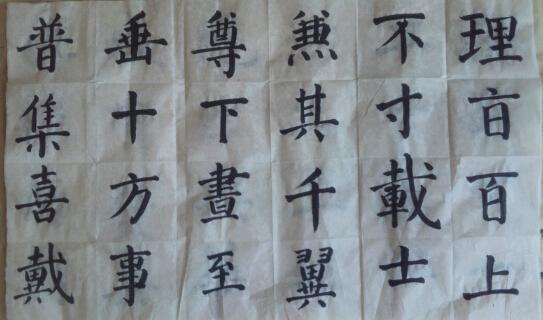 理百上
不寸載士
兼其千翼
尊下晝至
垂十方事
普集喜戴